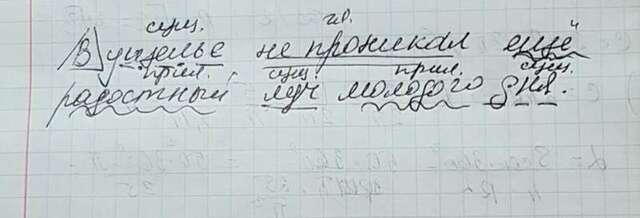 сущ. гл. ч
В ущелье не проникал ещё
прил. сущ. прил. сущ.
радостный луч молодого дня.